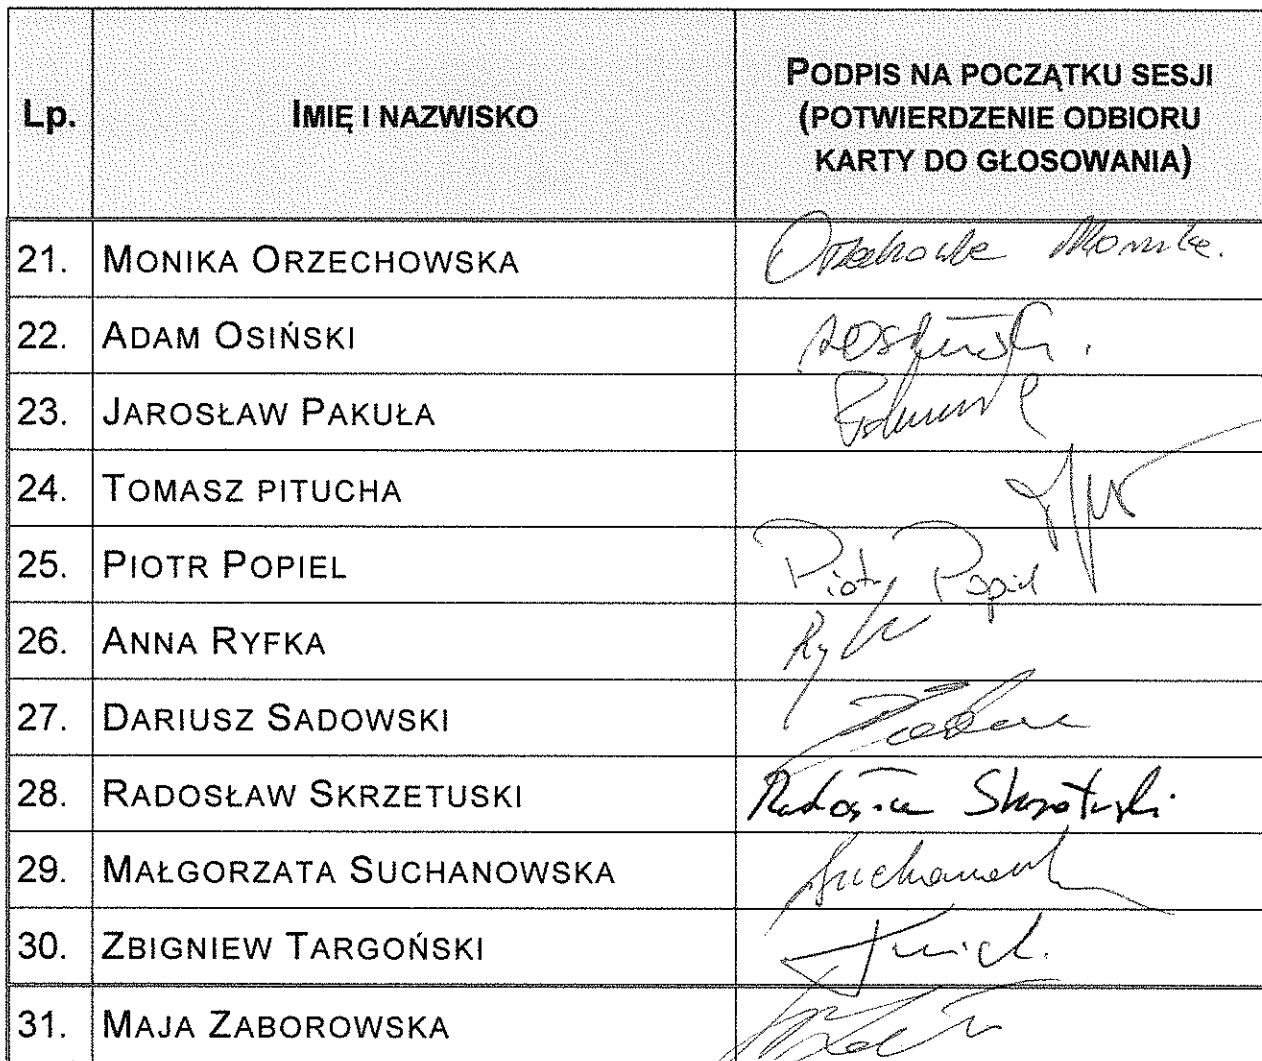 Lp.
IMIĘ I NAZWISKO
PODPIS NA POCZĄTKU SESJI
(POTWIERDZENIE ODBIORU
KARTY DO GŁOSOWANIA)
21. MONIKA ORZECHOWSKA Orzechowska Monika.
22. ADAM OSIŃSKI
23. JAROSŁAW PAKUŁA
24. TOMASZ PITUCHA
25. PIOTR POPIEL Piotr Popiel
26. ANNA RYFKA
27. DARIUSZ SADOWSKI
28. RADOSŁAW SKRZETUSKI Radosław Skrzetuski
29. MAŁGORZATA SUCHANOWSKA
30. ZBIGNIEW TARGOŃSKI
31. MAJA ZABOROWSKA